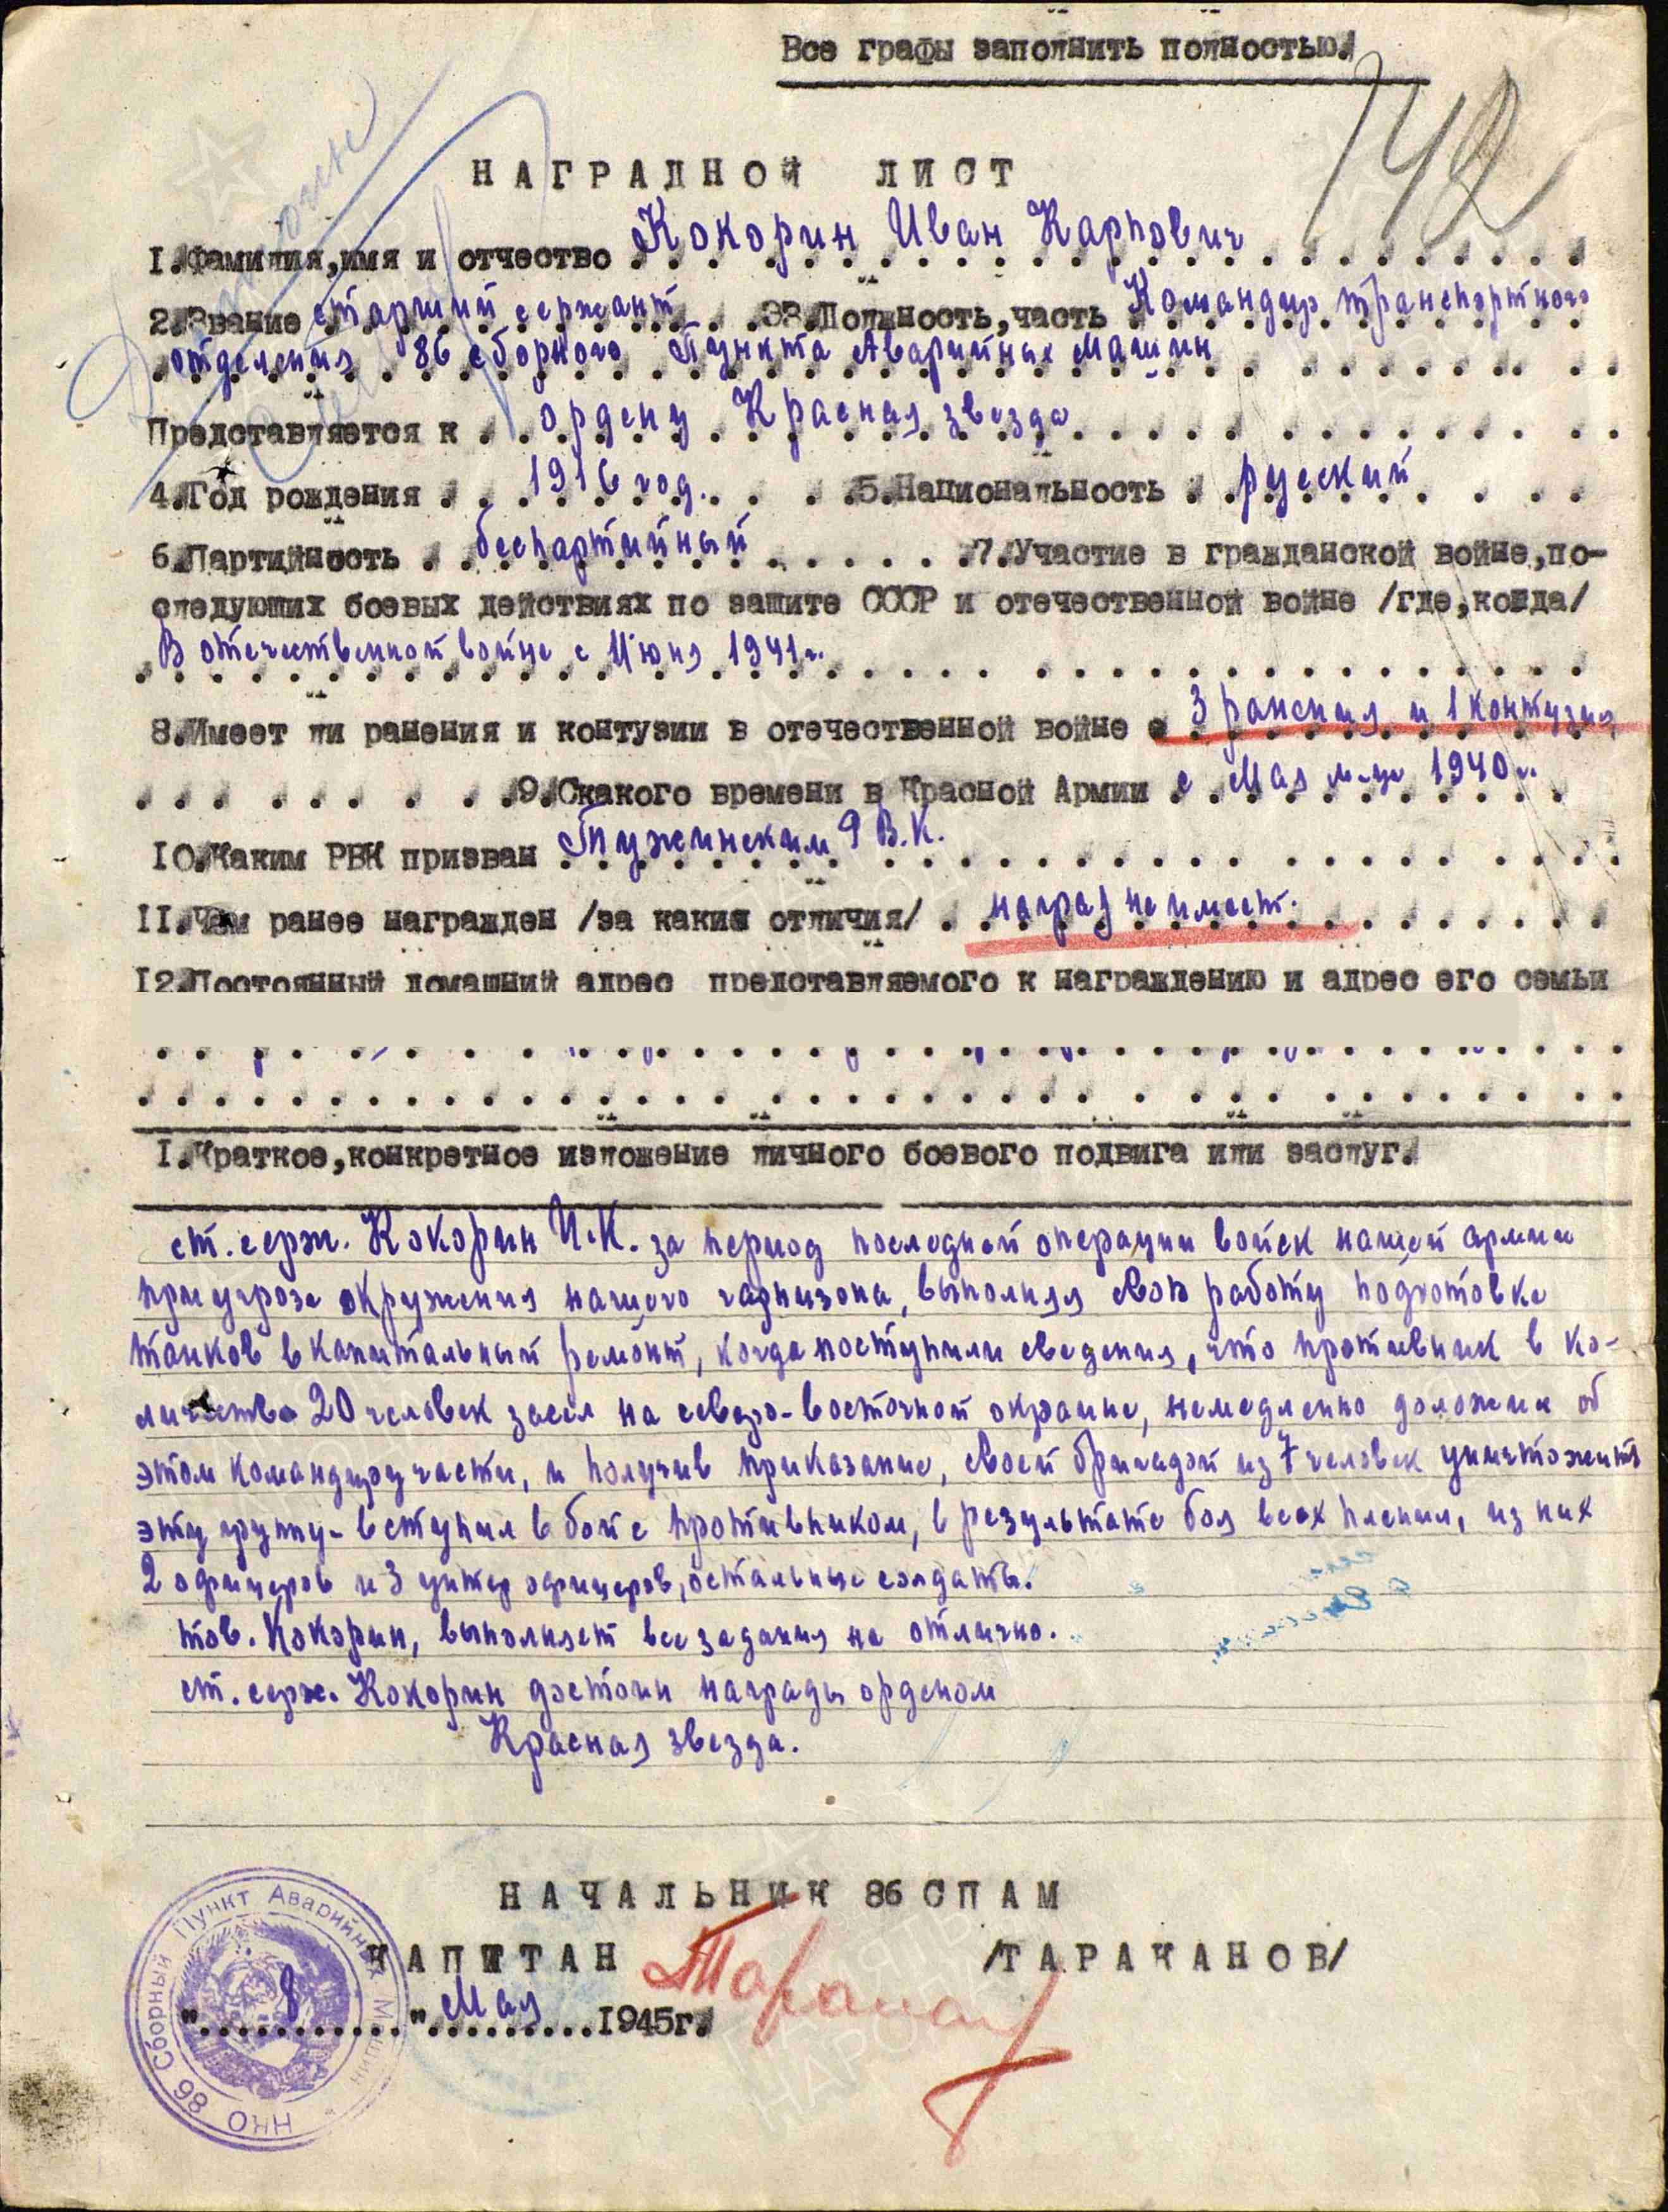 Все графы заполнить полностью.
742
НАГРАДНОЙ ЛИСТ
1.Фамилия,имя и отчество Кокорин Иван Карпович
2.Звание старший сержант 33.Должность,часть Командир транспортного
отделения 86 сборного Пункта Аварийных Машин
Представляется к ордену Красная звезда
4.Год рождения 1916 год. 5.Национальность русский
6.Партийность беспартийный 7.Участие в гражданской войне,по-
следующих боевых действиях по защите СССР и отечественной войне /где,когда/
В отечественной войне с Июня 1941г.
8.Имеет ли ранения и контузии в отечественной войне 3 ранения и 1 контузия
9.Скакого времени в Красной Армии с Мая м-ца 1940г.
10.Каким РВК призван Тужинским РВ.К.
11.Чем ранее награжден /за какие отличия/ наград не имеет.
12.Постоянный домашний адрес представляемого к награждению и адрес его семьи
1.Краткое,конкретное изложение личного боевого подвига или заслуг.
ст. серж. Кокорин И.К. за период последней операции войск нашей армии
при угрозе окружения нашего гарнизона, выполняя свою работу подготовке
танков в капитальный ремонт, когда поступили сведения, что противник в ко-
личестве 20 человек засел на северо-восточной окраине, немедленно доложил об
этом командиру части, и получив приказание, своей бригадой из 7 человек уничтожить
эту группу - вступил в бой с противником, в результате боя всех пленил, из них
2 офицеров и 3 унтер офицеров, остальные солдаты.
тов. Кокорин, выполняет все задания на отлично.
ст. серж. Кокорин достоин награды орденом
Красная звезда.
НАЧАЛЬНИК 86 СПАМ
КАПИТАН /ТАРАКАНОВ/
"8" Мая 1945г.
НКО 86 Сборный Пункт Аварийных Машин